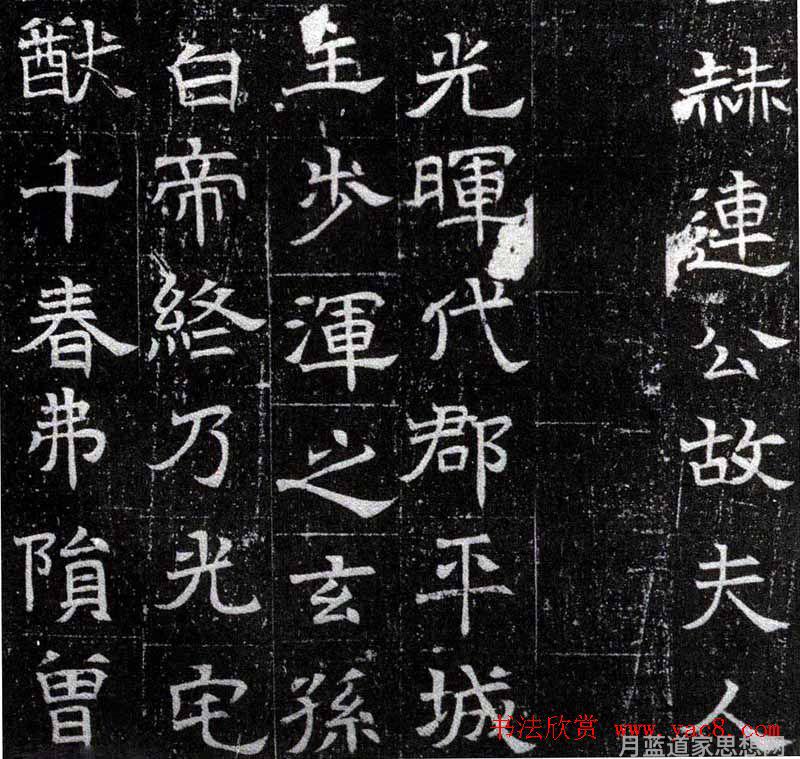 赫連公故夫人
光暉代郡平城
主步渾之玄孫
白帝終乃光宅
猷千春弗隕曾
书法欣赏 www.yac8.com
月蓝道家思想网